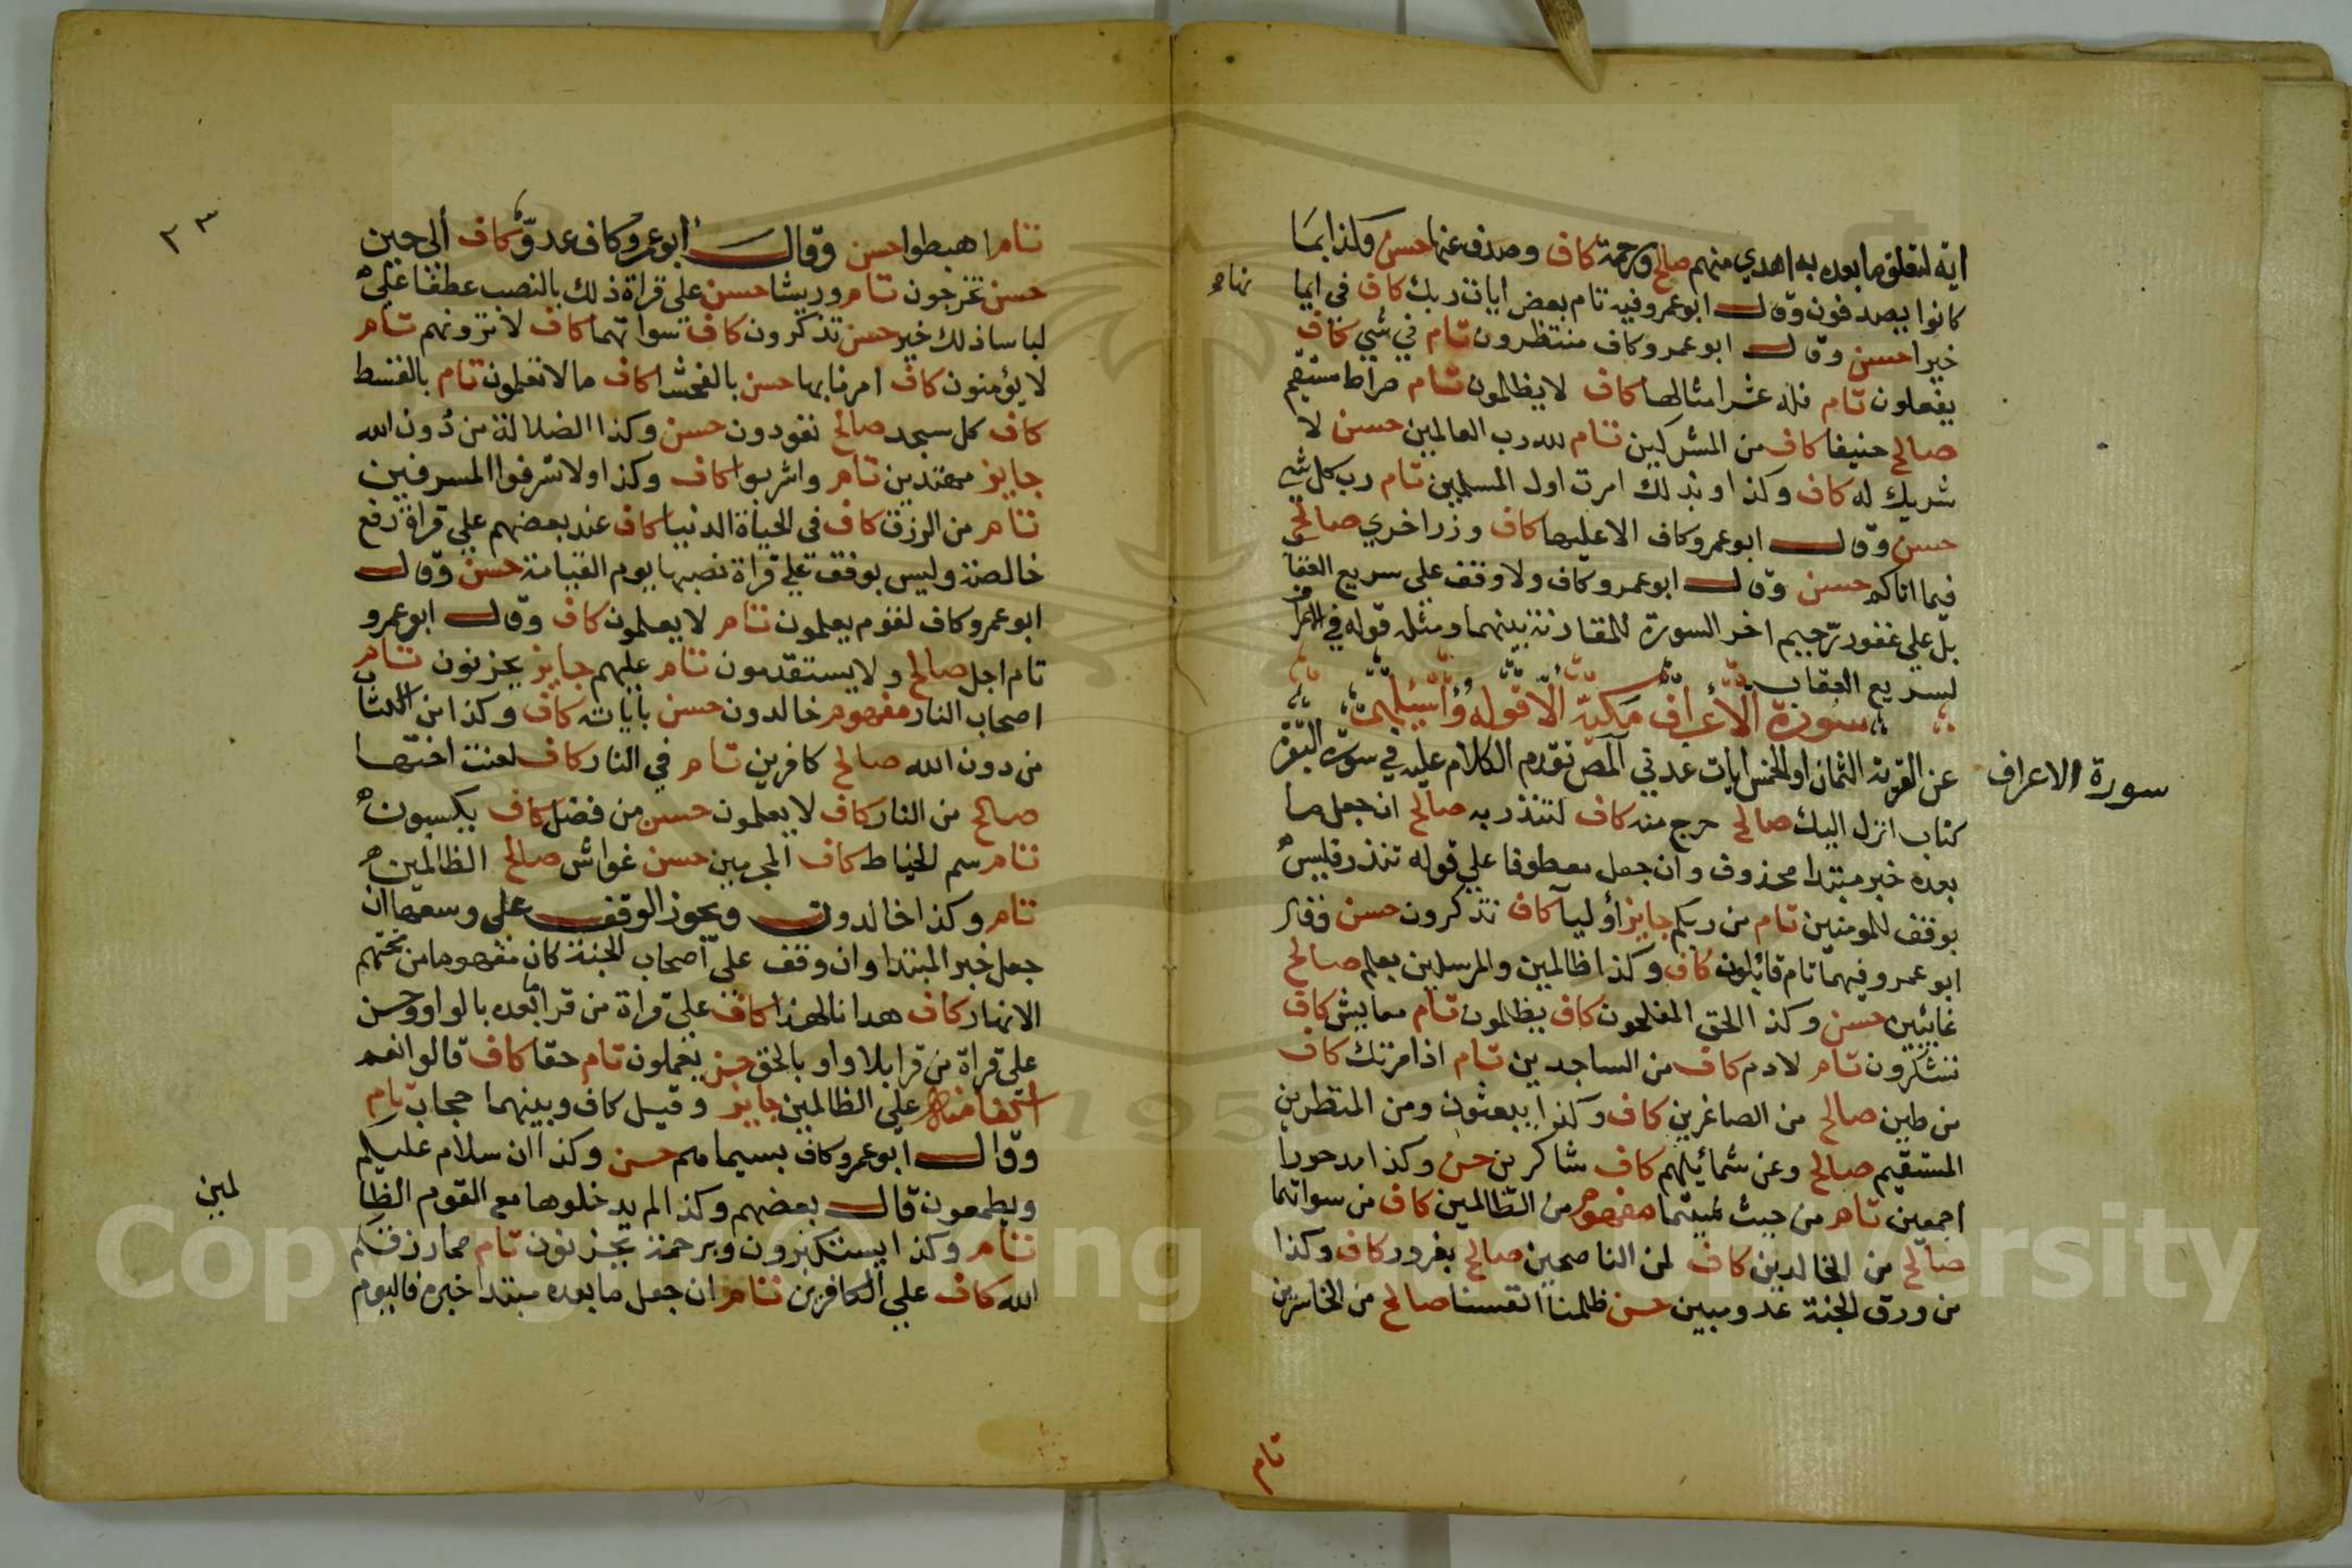 اية لتعلق ما بعده به اهدي منهم صالح ورحمة كاف وصدف عنها حسن وكذا بما
كانوا يصدفون وقال ابو عمرو فيه تام بعض ايات ربك كاف في ايما
نها
خيرا حسن وقال ابو عمرو كاف منتظرون تام في شي كاف
يفعلون تام فله عشر امثالها كاف لا يظلمون تام صراط مستقيم
صالح حنيفا كاف من المشركين تام لله رب العالمين حسن لا
شريك له كاف وكذا وبذلك امرت اول المسلمين تام رب كل شي
حسن وقال ابو عمرو كاف الا عليها كاف وزر اخري صالح
فيما اتاكم حسن وقال ابو عمرو كاف ولا وقف علي سريع العقا
بل علي غفور رحيم اخر السورة للمقارنة بينهما ومثله قوله في
لسريع العقاب
سورة الأعراف مكية الا قوله واسئلهم
عن القرية الثمان او الخمس ايات عدني المص تقدم الكلام عليه في سورة البقرة
سورة الاعراف
كتاب انزل اليك صالح حرج منه كاف لتنذر به صالح ان جعل ما
بعده خبر مبتدا محذوف وان جعل معطوفا علي قوله تنذر فليس
بوقف للمومنين تام من ربكم جايز أوليآ كاف تذكرون حسن وقال
ابو عمرو فيهما تام قائلون كاف وكذا ظالمين والمرسلين بعلم صالح
غائبين حسن وكذا الحق المفلحون كاف يظلمون تام معايش كاف
تشكرون تام لادم كاف من الساجدين تام اذ امرتك كاف
من طين صالح من الصاغرين كاف وكذا يبعثون ومن المنظرين
المستقيم صالح وعن شمائيلهم كاف شاكرين حسن وكذا مدحورا
اجمعين تام من حيث شيتما مفهوم من الظالمين كاف من سواتهما
صالح من الخالدين كاف لمن الناصحين صالح بغرور كاف وكذا
من ورق الجنة عدو مبين حسن ظلمنا انفسنا صالح من الخاسرين
تام
٣٣
تام اهبطوا حسن وقال أبو عمرو كاف عدو كاف ألي حين
حسن تخرجون تام وريشا حسن علي قراة ذلك بالنصب عطفا علي
لباسا ذلك خير حسن تذكرون كاف سواتهما كاف لا ترونهم تام
لا يؤمنون كاف امرنا بها حسن بالفحشا كاف ما لا تعلمون تام بالقسط
كاف كل مسجد صالح تعودون حسن وكذا الضلالة من دُون الله
جايز مهتدين تام واشربوا كاف وكذا ولا تسرفوا المسرفين
تام من الرزق كاف في الحياة الدنيا كاف عند بعضهم علي قراة رفع
خالصة وليس بوقف علي قراة نصبها يوم القيامة حسن وقال
ابو عمرو كاف لقوم يعلمون تام لا يعلمون كاف وقال ابو عمرو
تام اجل صالح ولا يستقدمون تام عليهم جايز يحزنون تام
اصحاب النار مفهوم خالدون حسن باياته كاف وكذا من الكتاب
من دون الله صالح كافرين تام في النار كاف لعنت اختها
صالح من النار كاف لا يعلمون حسن من فضل كاف يكسبون
تام سم الخياط كاف المجرمين حسن غواش صالح الظالمين
تام وكذا خالدون ويجوز الوقف علي وسعها ان
جعل خبر المبتدا وان وقف علي اصحاب الجنة كان مفهوما من تحتهم
الانهار كاف هدانا لهذا كاف علي قراة من قرا ما بعده بالواو وحسن
علي قراة من قرا بلا واو بالحق حسن يعملون تام حقا كاف قالوا نعم
علي الظالمين جايز وقيل كاف وبينهما حجاب تام
وقال ابو عمرو كاف بسيماهم حسن وكذا ان سلام عليكم
ويطمعون قال بعضهم وكذا لم يدخلوها مع القوم الظا
لمين
تام وكذا يستكبرون وبرحمة يحزنون تام مما رزقكم
الله كاف علي الكافرين تام ان جعل ما بعده مبتدا خبره فاليوم
Copyright © King Saud University
195